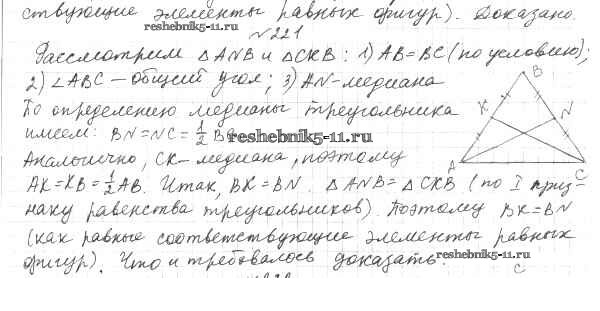 ствующие элементы равных фигур). Доказано.
reshebnik5-11.ru
№221
Рассмотрим △ANB и △CKB: 1) AB=BC (по условию);
2) ∠ABC – общий угол; 3) AN – медиана
По определению медианы треугольника
имеем: BN=NC=1/2 BC.
reshebnik5-11.ru
Аналогично, CK – медиана, поэтому
AK=KB=1/2 AB. Итак, BK=BN. △ANB=△CKB (по I приз-
наку равенства треугольников). Поэтому BK=BN
(как равные соответствующие элементы равных
фигур). Что и требовалось доказать.
reshebnik5-11.ru
B
K
N
A
C